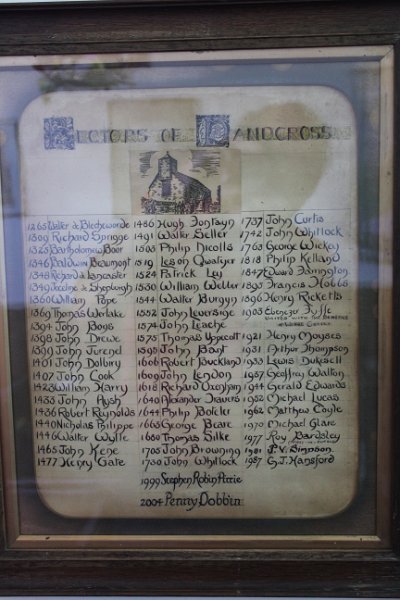 RECTORS OF LANDCROSS
1265 Walter de Blecheworde
1309 Richard Sprigge
1325 Bartholomew Boor
1346 Baldwin Beaumont
1348 Richard de Lancaster
1349 de Shepleigh
1360 William Pope
1369 Thomas Werlake
1394 John Boys
1398 John Drewe
1399 John Turend
1401 John Dolbiry
1407 John Cook
1423 William Harry
1433 John Aysh
1436 Robert Reynolds
1440 Nicholas Philippe
1446 Walter Wylle
1465 John Kene
1477 Henry Gate
1486 Hugh Fontayn
1491 Walter Seller
1505 Philip Nicolls
1519 Leson Qualyer
1524 Patrick Ley
1530 William Weller
1544 Walter Burgyn
1552 John Leversige
1574 John Leache
1575 Thomas Yppecott
1595 John Bant
1606 Robert Buckland
1609 John Lendon
1618 Richard Oxenham
1640 Alexander Travers
1644 Philip Boteler
1663 George Beare
1680 Thomas Silke
1705 John Browning
1730 John Whitlock
1737 John Curtis
1742 John Whitlock
1763 George Wickey
1818 Philip Kelland
1847 Edward Harrington
1895 Francis Hobbs
1896 Henry Ricketts
1903 Ebenezer Fyffe
UNITED WITH THE BENEFICE
1921 Henry Moyses
1931 Arthur Thompson
1933 Lewis Dukesell
1937 Geoffrey Walton
1944 Gerald Edwards
1952 Michael Lucas
1962 Matthew Coyle
1970 Michael Glare
1977 Roy Bardsley
1981 P.V. Simpson
1987 G.J. Hansford
1999 Stephen Robin Pierie
2004 Penny Dobbin